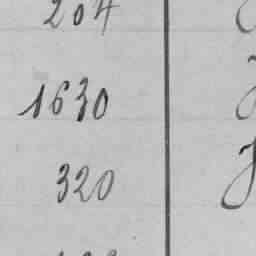 204
1630
320